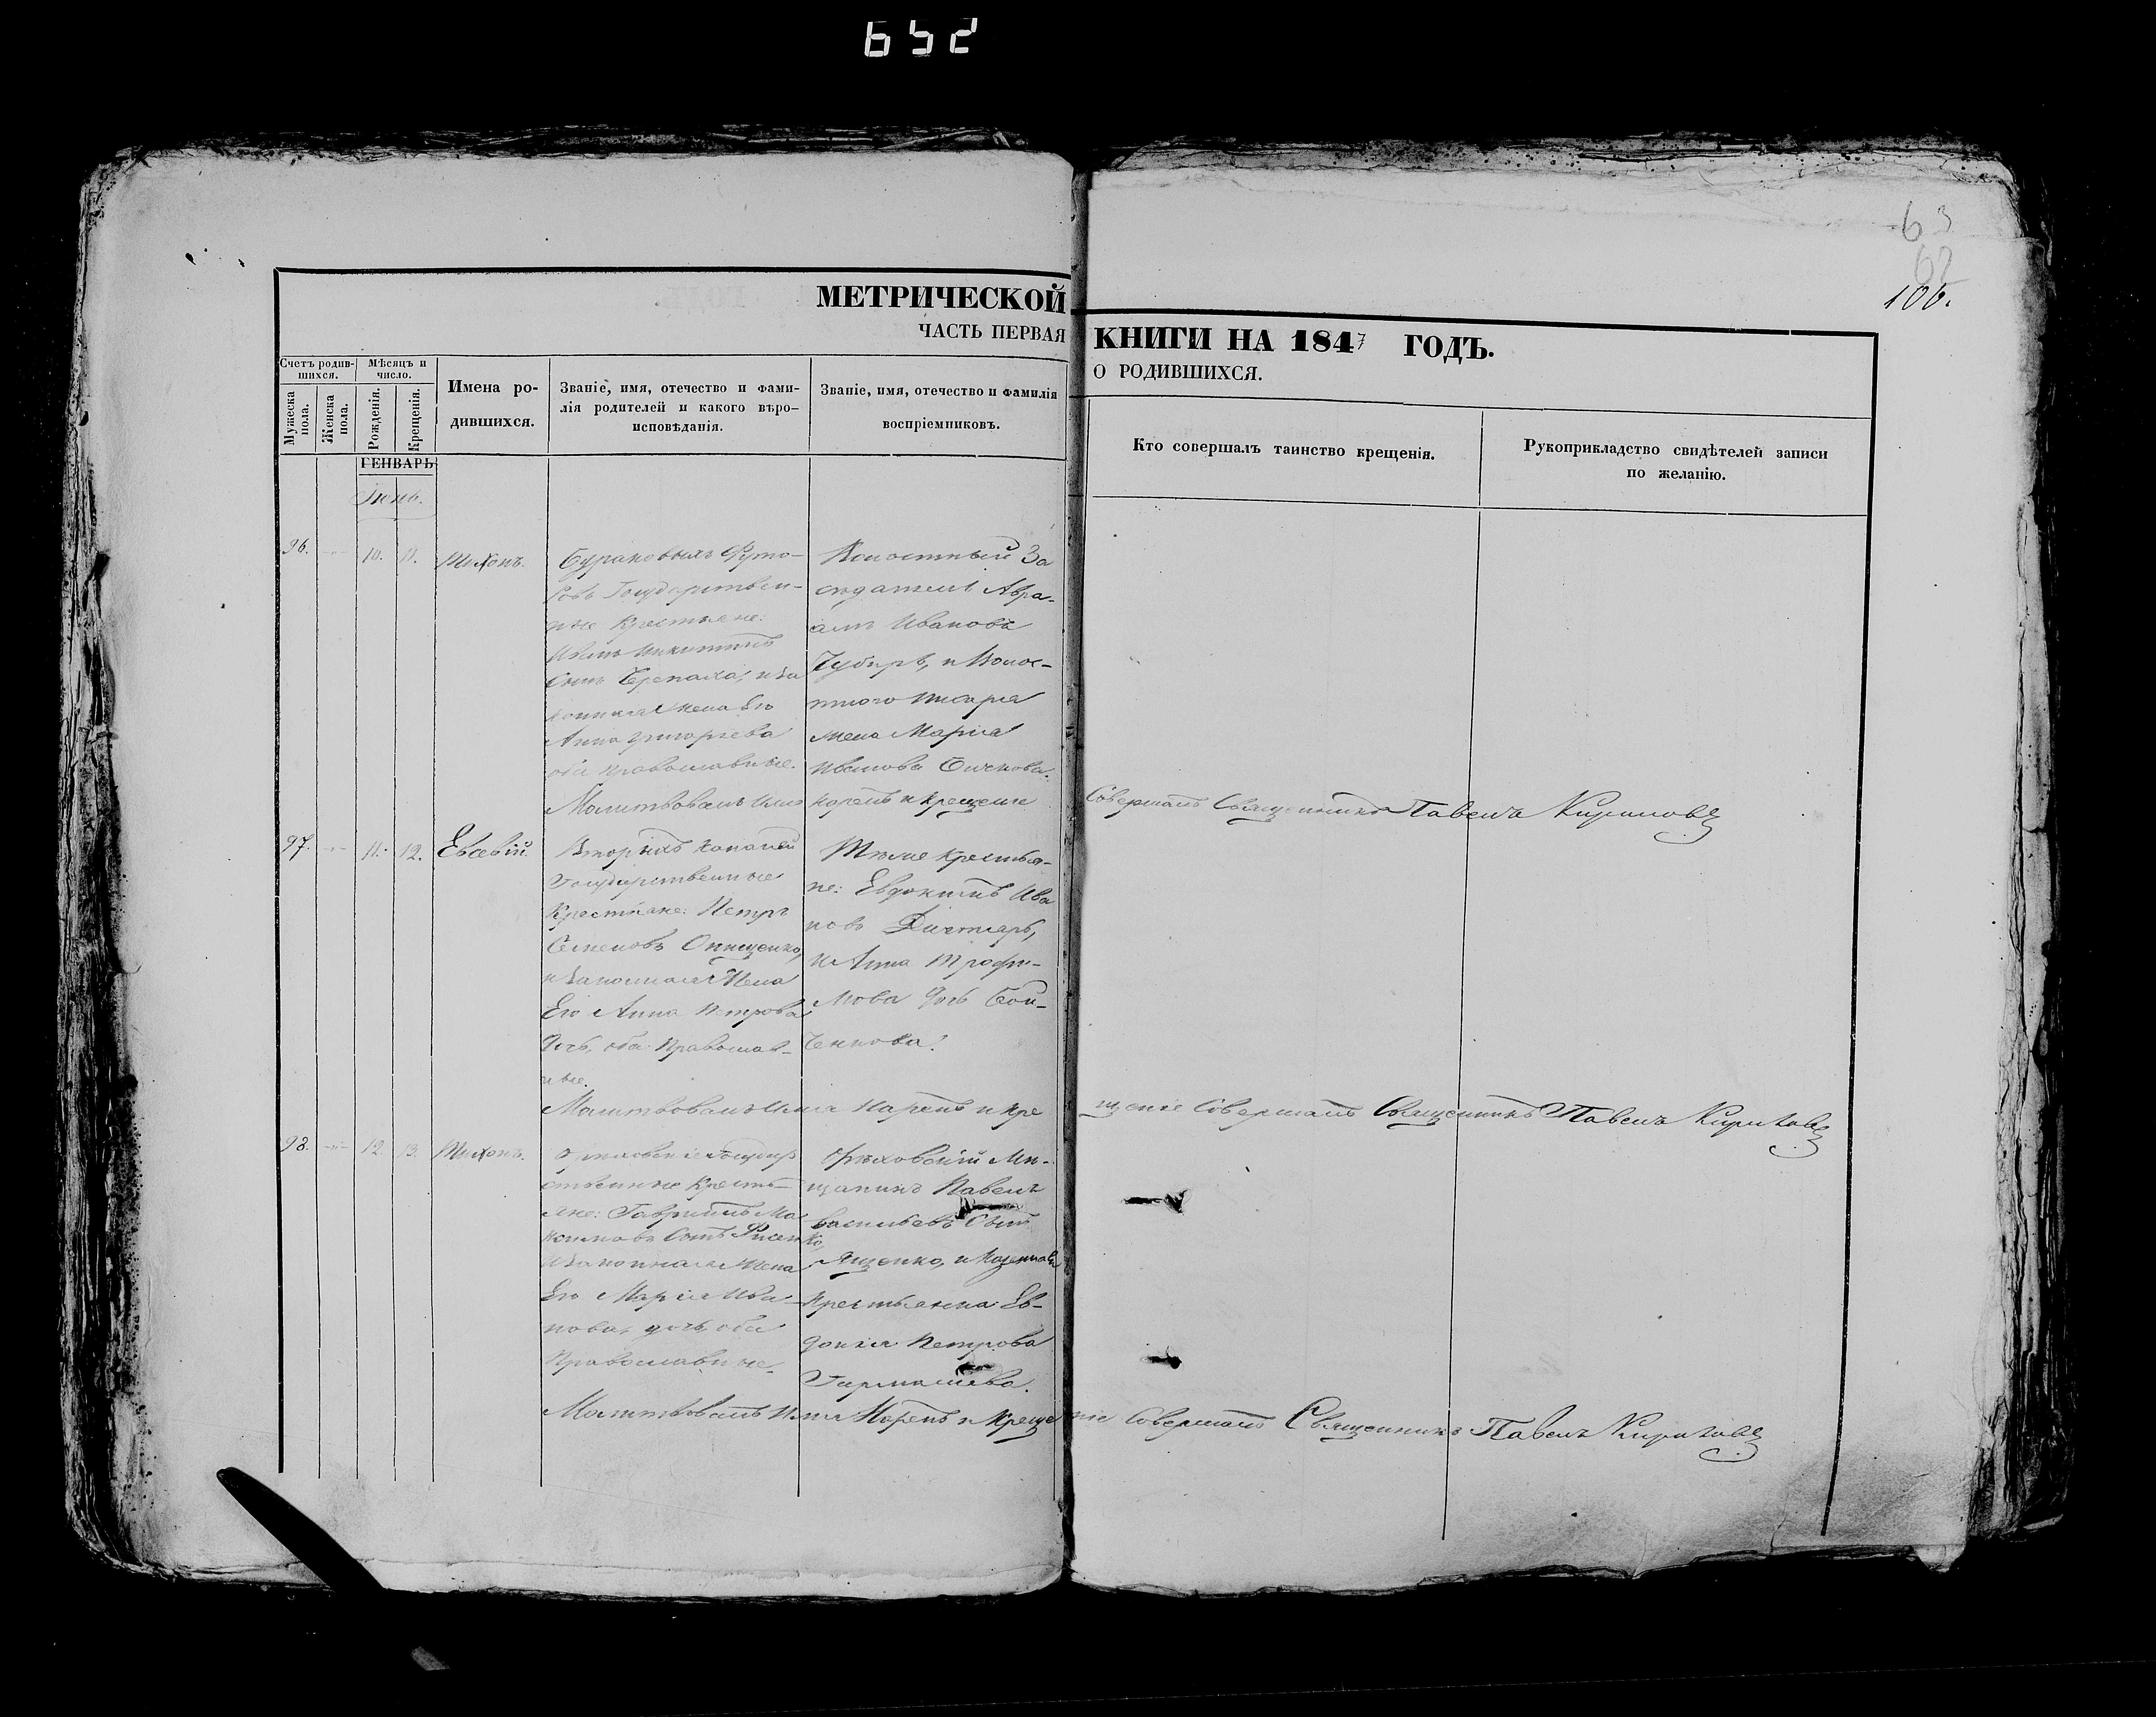 652
63
62
106.
МЕТРИЧЕСКОЙ
ЧАСТЬ ПЕРВАЯ
КНИГИ НА 1847 ГОДЪ.
О РОДИВШИХСЯ.
Счетъ родив-
шихся.
Мѣсяцъ и
число.
Мужеска
пола.
Женска
пола.
Рожденія.
Крещенія.
Имена ро-
дившихся.
Званіе, имя, отечество и фами-
лія родителей и какого вѣро-
исповѣданія.
Званіе, имя, отечество и фамилія
воспріемниковъ.
Кто совершалъ таинство крещенія.
Рукоприкладство свидѣтелей записи
по желанію.
ГЕНВАРЬ
Іюнь.
96.
10. 11.
Тихонъ.
Бураковыхъ Футо-
ровъ Государствен-
ные Крестьяне:
Никитинъ
Сынъ Черепаха, и за
конная Жена Его
Анна Григорьева
оба православные.
Волостный За
сѣдатель Авра-
амъ Ивановъ
Чубирь, и Волос-
тного писаря
жена Марія
Иванова
Молитвовалъ имя нарекъ и крещеніе Совершалъ Священникъ Павелъ Кириловъ
97.
11. 12.
Евсевій.
Вторыхъ Копаней
Государственные
Крестьяне: Петръ
Семеновъ Онищенко,
и Законная Жена
Его Анна Петрова
Дочь, оба Православ-
ные.
Тѣже крестья-
не: Евдокимъ Ива
новъ Дичтярь,
и Анна Трофи-
мова дочь Бой-
ченкова.
Молитвовалъ имя нарекъ и кре щеніе Совершалъ Священникъ Павелъ Кириловъ
98.
12. 13.
Тихонъ.
Орѣховскіе Государ
ственные Кресть-
яне: Гавріилъ Ма
ксимовъ Сынъ Лисенко,
и Законная Жена
Его Марія Ива-
нова, дочь, оба
Православные.
Орѣховскій Мѣ-
щанинъ Павелъ
Васильевъ Сынъ
Ященко, и Казенная
Крестьянка: Ев-
докія Петрова
Гармашева.
Молитвовалъ имя Нарекъ и Креще ніе Совершалъ Священникъ Павелъ Кириловъ